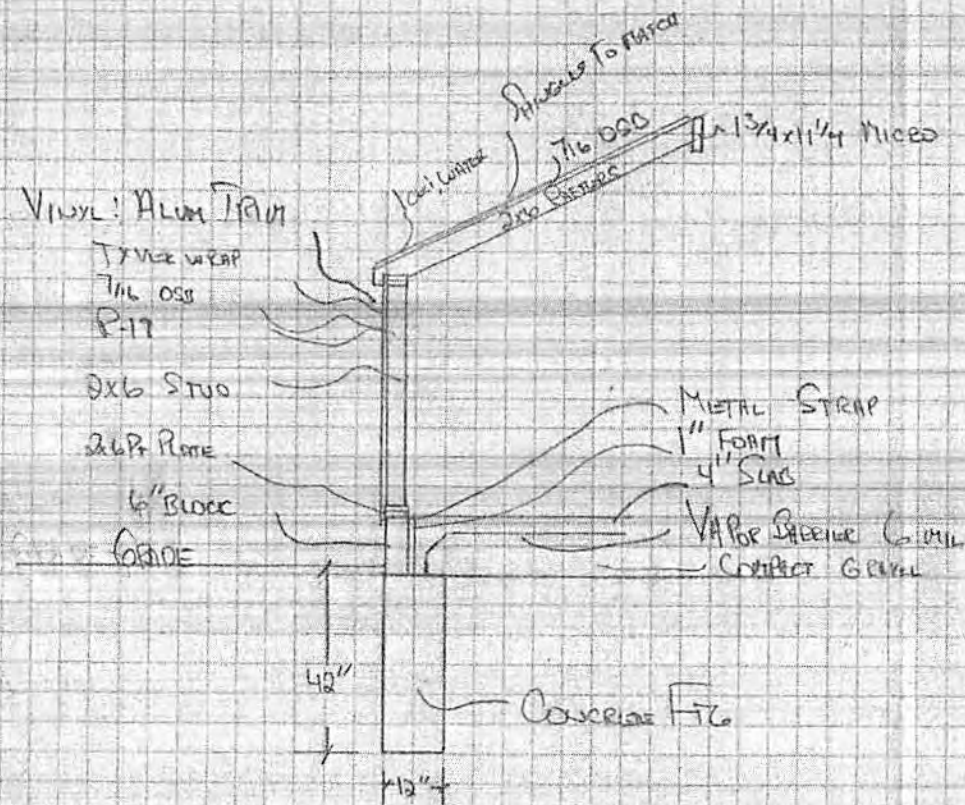 Shingles To Match
7/16 OSB
1 3/4 x 11 1/4 Micro
Ice; Water
2x6 Rafters
Vinyl; Alum Trim
Tyvek wrap
7/16 OSB
R-19
2x6 Stud
2x6 Pt Plate
6" Block
Grade
Metal Strap
1" Foam
4" Slab
Vapor Barrier 6 mil
Compact Gravel
42"
Concrete Ftg
12"